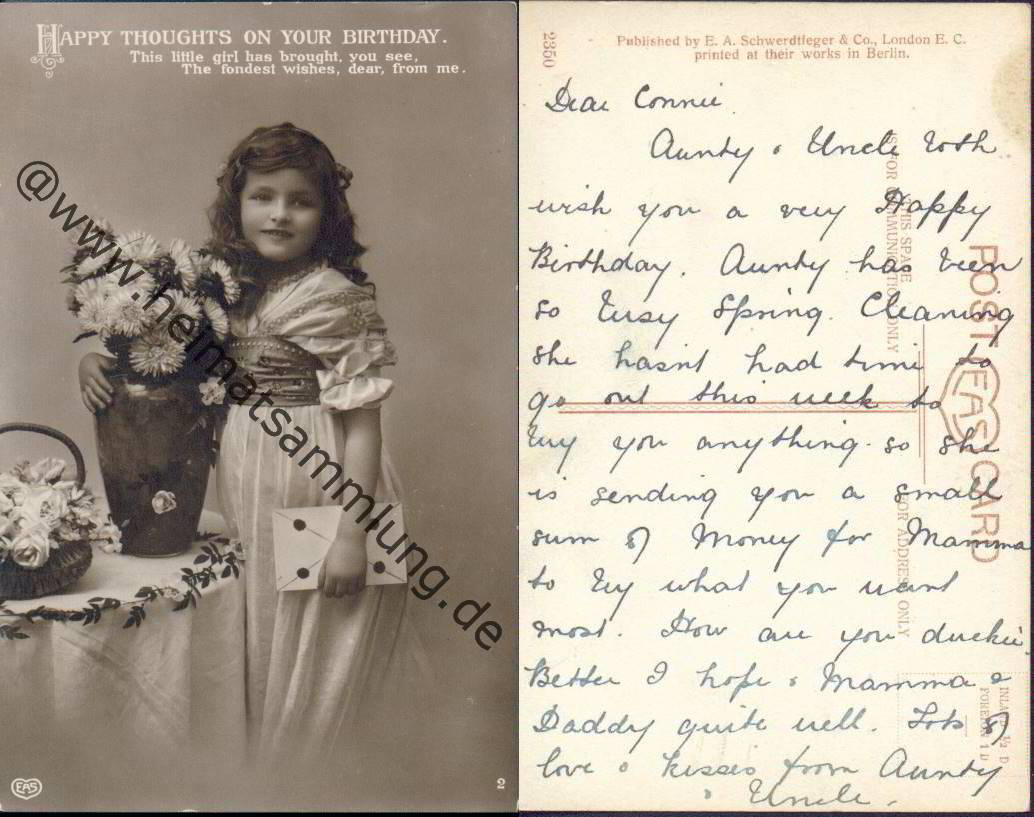 HAPPY THOUGHTS ON YOUR BIRTHDAY.
This little girl has brought, you see,
The fondest wishes, dear, from me.
@www.heimatsammlung.de
EAS
2
2350
Published by E. A. Schwerdtfeger & Co., London E. C.
printed at their works in Berlin.
Dear Connie.
Aunty & Uncle both
wish you a very Happy
Birthday. Aunty has been
so busy Spring. Cleaning
she hasnt had time to
go out this week to
buy you anything. so she
is sending you a small
sum of Money for Mamma
to buy what you want
most. How are you duckie.
Better I hope & Mamma &
Daddy quite well. Lots of
love & kisses from Aunty
& Uncle.
THIS SPACE
IS FOR COMMUNICATION ONLY
POST CARD
EAS
FOR ADDRESS ONLY
INLAND ½ D
FOREIGN 1 D